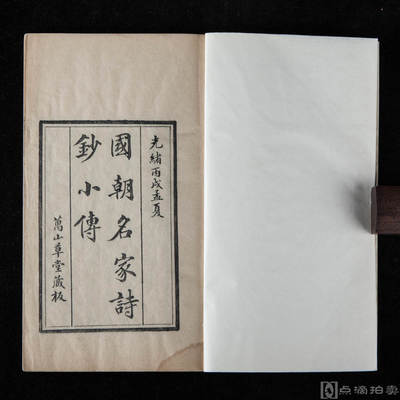 光緒丙戌孟夏
國朝名家詩
鈔小傳
萬山草堂藏板
点滴拍卖